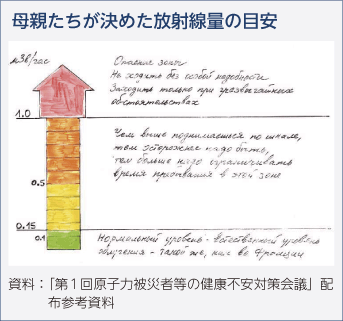 母親たちが決めた放射線量の目安
мЗв/час
Опасные зоны
Не ходить без особой надобности
Заходить только при чрезвычайных
обстоятельствах
1.0
Чем выше поднимаешься по шкале,
тем осторожнее надо быть,
тем больше надо ограничивать
время пребывания в этой зоне
0.5
0.15
0.1
Нормальный уровень - естественный уровень
излучения - такой же, как во Франции
資料：「第1回原子力被災者等の健康不安対策会議」配
布参考資料